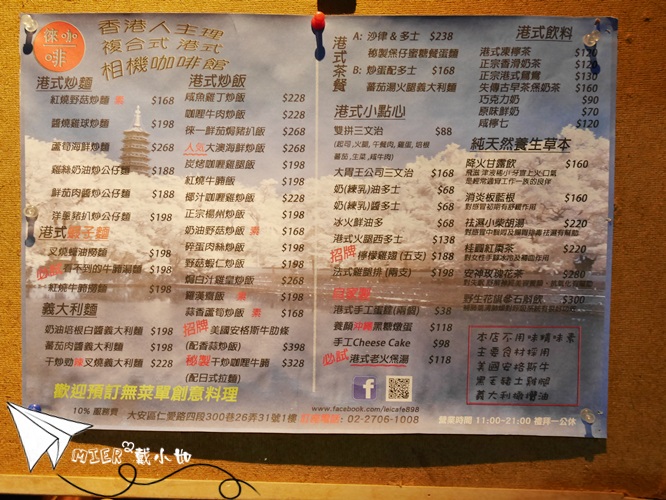 徠咖啡
香港人主理
複合式 港式
相機咖啡館
港式炒麵
紅燒野菇炒麵 素 $168
醬燒雞球炒麵 $188
蘆筍海鮮炒麵 $268
雞絲奶油炒公仔麵 $188
鮮茄肉醬炒公仔麵 $188
洋蔥豬扒炒公仔麵 $198
港式車子麵
叉燒蠔油撈麵 $198
看不到的牛腩湯麵 $198
紅燒牛腩撈麵 $198
義大利麵
奶油培根白醬義大利麵 $198
蕃茄肉醬義大利麵 $198
干炒勁辣叉燒義大利麵 $228
港式炒飯
咸魚雞丁炒飯 $228
咖哩牛肉炒飯 $228
徠一鮮茄焗豬扒飯 $268
人氣 大澳海鮮炒飯 $268
炭烤咖哩雞腿飯 $198
紅燒牛腩飯 $198
椰汁咖哩雞炒飯 $228
正宗楊州炒飯 $198
奶油野菇炒飯 素 $168
碎蛋肉絲炒飯 $198
野菇蝦仁炒飯 $198
焗白汁雞皇炒飯 $268
羅漢齋飯 素 $168
蒜香蘆筍炒飯 素 $168
招牌 美國安格斯牛肋條
(配香蒜炒飯) $398
秘製 干炒咖哩牛腩 $328
(配日式拉麵)
歡迎預訂無菜單創意料理
10% 服務費 大安區仁愛路四段300巷26弄31號1樓 訂席電話: 02-2706-1008
港式茶餐
A: 沙律 & 多士 $238
秘製焦仔蜜糖餐蛋麵
B: 炒蛋配多士 $168
蕃茄湯火腿義大利麵
港式小點心
雙拼三文治 $88
(起司,火腿,午餐肉,雞蛋,培根
蕃茄,生菜,咸牛肉)
大胃王公司三文治 $168
奶(煉乳)油多士 $68
奶(煉乳)醬多士 $68
冰火鮮油多 $68
港式火腿西多士 $138
招牌 檸檬雞翅 (五支) $188
法式雞腿排 (兩支) $198
自家製
港式手工蛋撻(兩個) $38
養顏沖繩黑糖燉蛋 $118
手工Cheese Cake $98
必試 港式老火煲湯 $118
www.facebook.com/leicafe898
港式飲料
港式凍檸茶 $120
正宗香滑奶茶
正宗港式鴛鴦 $130
失傳古早茶煲奶茶 $160
巧克力奶 $90
原味鮮奶 $70
咸檸七 $120
純天然養生草本
降火甘露飲 $160
消炎板藍根 $160
袪濕小柴胡湯 $220
桂圓紅棗茶 $220
安神玫瑰花茶 $280
野生花旗參石斛飲 $300
本店不用味精味素
主要食材採用
美國安格斯牛
黑毛豬土雞腿
義大利橄欖油
營業時間 11:00-21:00 禮拜一公休
MIER 戴小如